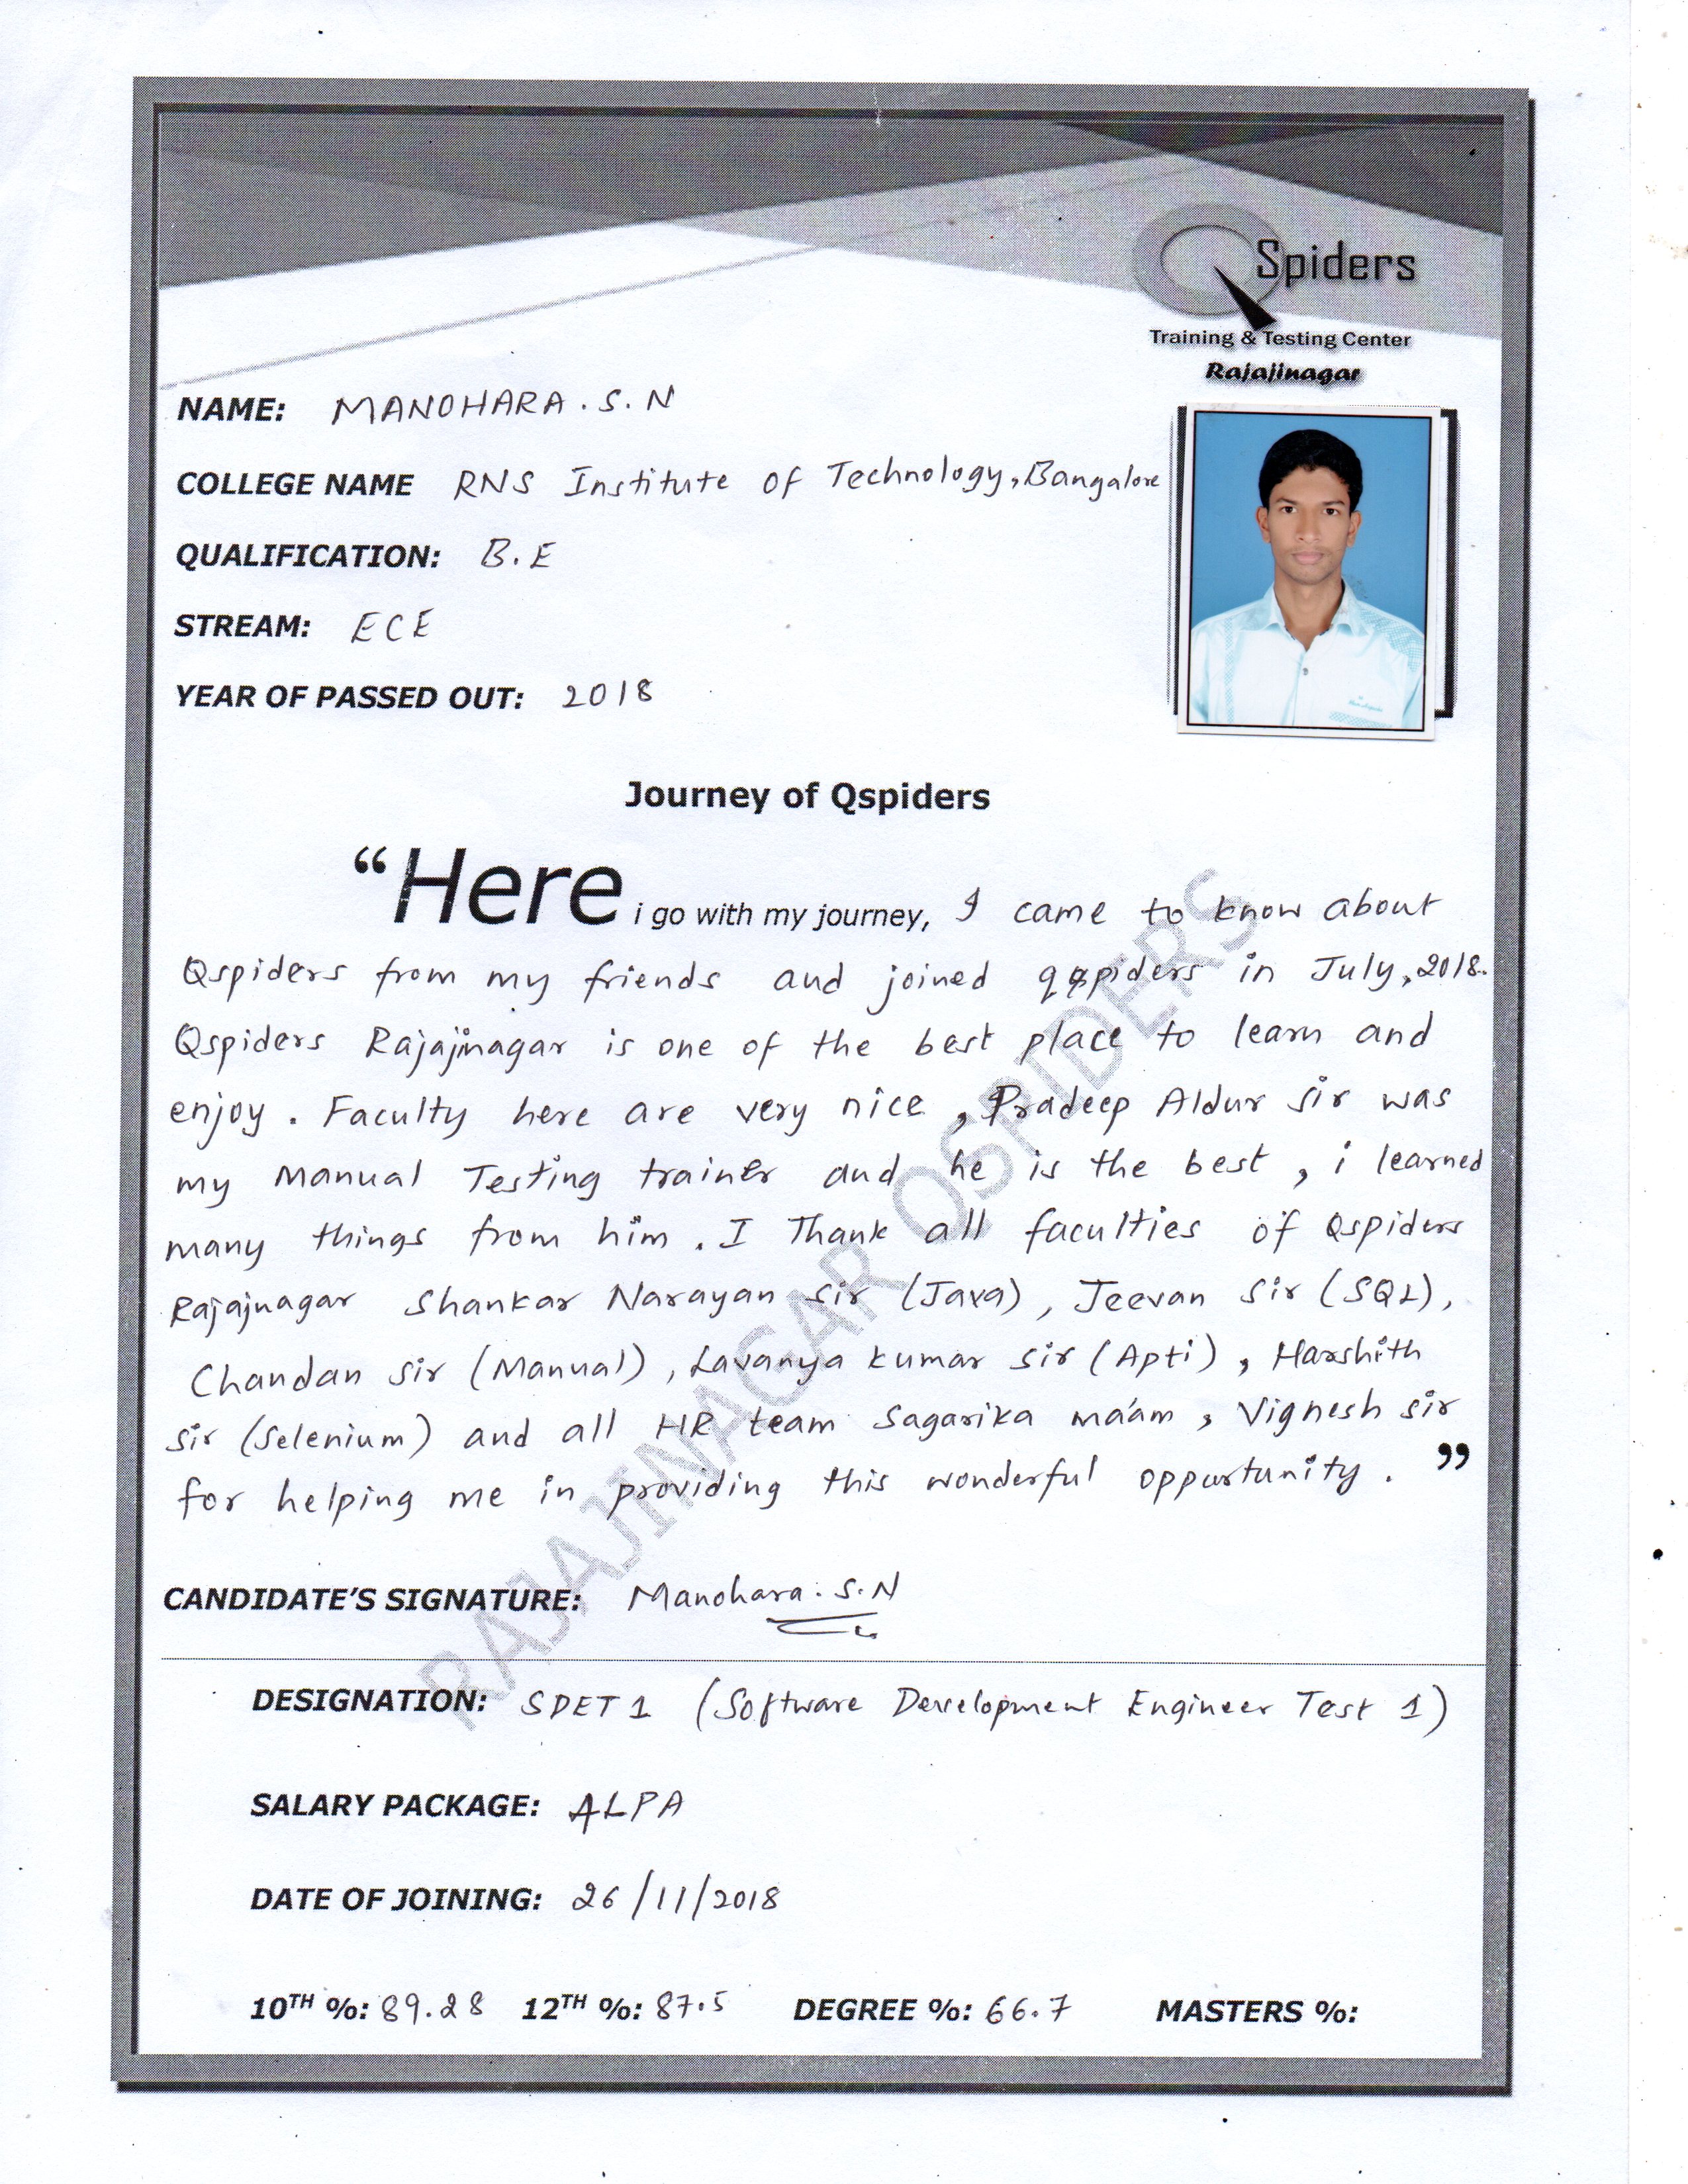 Q Spiders
Training & Testing Center
Rajajinagar
NAME: MANOHARA . S. N
COLLEGE NAME RNS Institute of Technology, Bangalore
QUALIFICATION: B.E
STREAM: ECE
YEAR OF PASSED OUT: 2018
Journey of Qspiders
“Here i go with my journey, I came to know about
Qspiders from my friends and joined qspiders in July, 2018.
Qspiders Rajajinagar is one of the best place to learn and
enjoy . Faculty here are very nice , Pradeep Aldur sir was
my Manual Testing trainer and he is the best , i learned
many things from him . I Thank all faculties of Qspiders
Rajajnagar Shankar Narayan sir (Java) , Jeevan Sir (SQL) ,
Chandan sir (Manual) , Lavanya kumar sir (Apti) , Harshith
sir (Selenium) and all HR team Sagarika ma'am , Vignesh sir
for helping me in providing this wonderful oppurtunity . ”
RAJAJINAGAR QSPIDERS
CANDIDATE’S SIGNATURE: Manohara . S. N
DESIGNATION: SDET 1 (Software Development Engineer Test 1)
SALARY PACKAGE: 4LPA
DATE OF JOINING: 26/11/2018
10TH %: 89.28 12TH %: 87.5 DEGREE %: 66.7 MASTERS %: